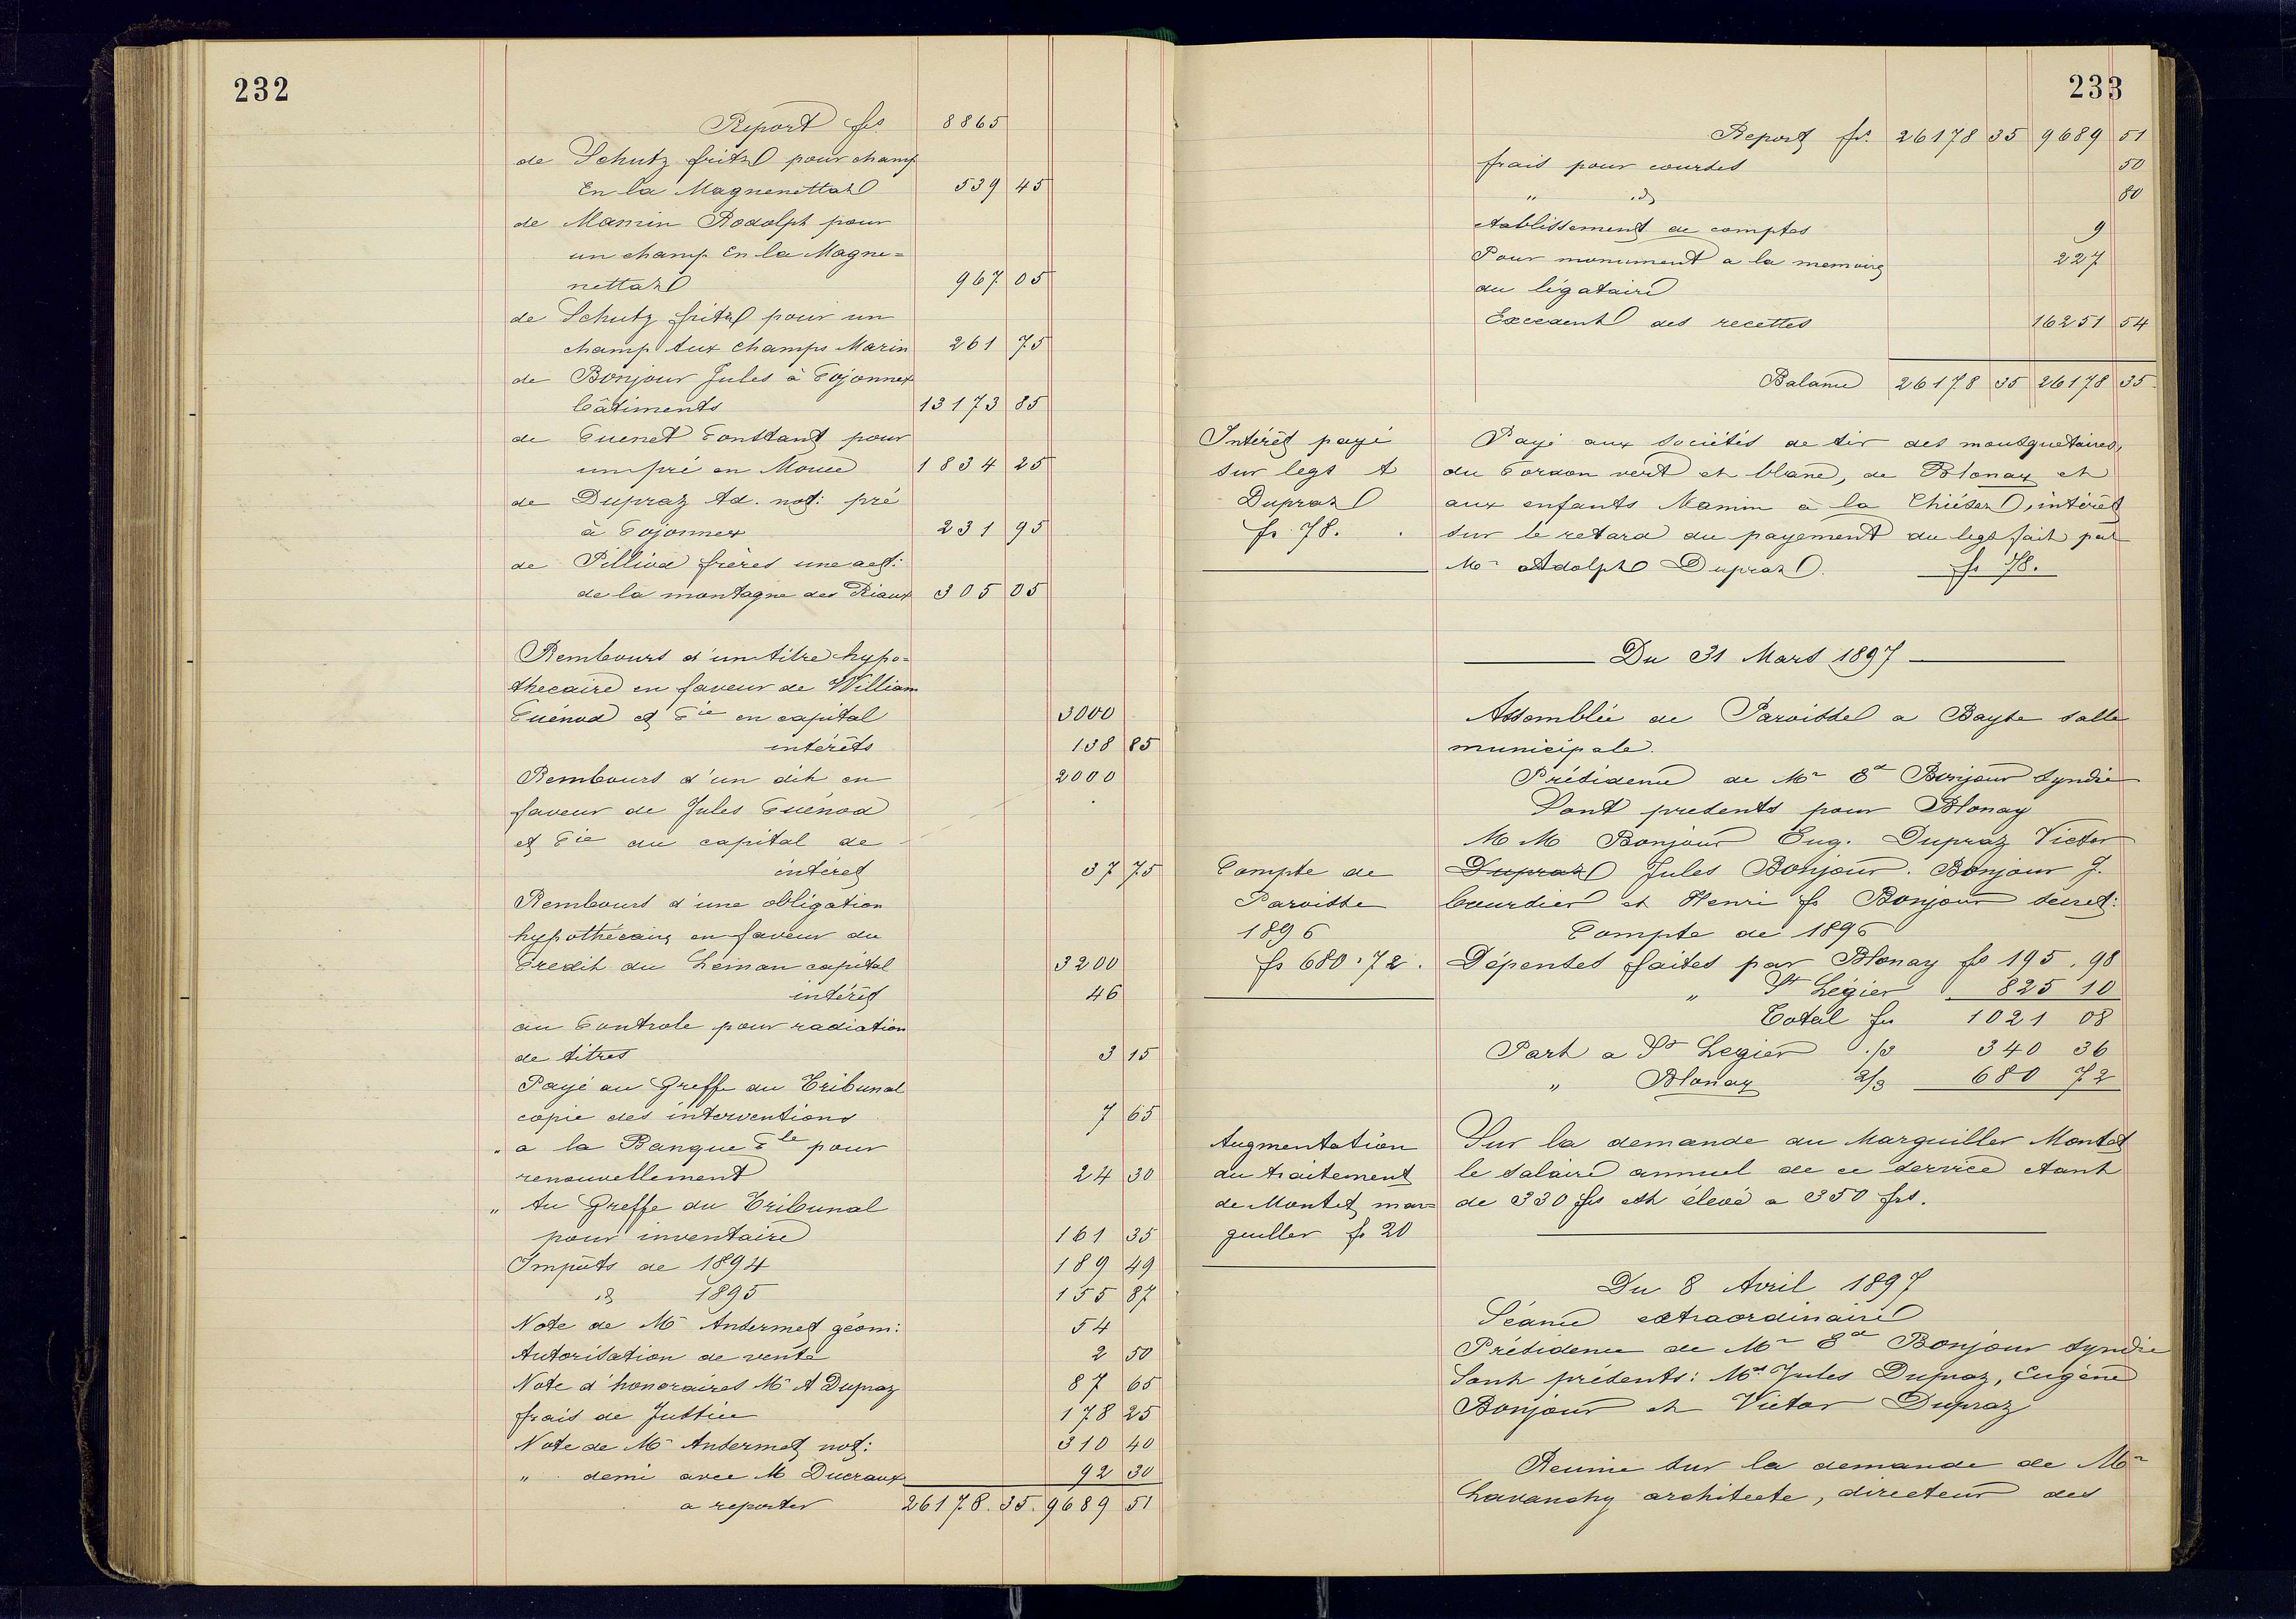 232
Report frs. 8865
de Schutz fritz pour champ
En la Magnenettaz 539 45
de Mamin Rodolph pour
un champ En la Magne=
nettaz 967 05
de Schutz fritz pour un
champ Aux Champs Marin 261 75
de Bonjour Jules à Cojonnex
bâtiments 13173 85
de Cuenet Constant pour
un pré en Mouce 1834 25
de Dupraz Ad. not: pré
à Cojonnex 231 95
de Pilliod frères une act:
de la montagne des Riaux 305 05
Rembours d'un titre hypo=
thecaire en faveur de William
Cuénod et Cie en capital 3000
intérêts 138 85
Rembours d'un dit en 2000
faveur de Jules Cuénod
et Cie au capital de
intéret 37 75
Rembours d'une obligation
hypothécaire en faveur du
Credit du Leman capital 3200
intérêt 46
au Controle pour radiation
de titres 3 15
Payé au Greffe du Tribunal
copie des interventions 7 65
" a la Banque Cle pour
renouvellement 24 30
" Au Greffe du Tribunal
pour inventaire 161 35
Impôts de 1894 189 49
id 1895 155 87
Note de Mr Ansermet géom: 54
Autorisation de vente 2 50
Note d'honoraires Mr A Dupraz 87 65
frais de Justice 178 25
Note de Mr Ansermet not: 310 40
" demi avec M Ducraux 92 30
a reporter 26178.35. 9689 51
233
Report fr. 26178 35 9689 51
frais pour courses 50
" id 80
etablissement de comptes 9
Pour monument a la memoire 227
du légataire
Excedent des recettes 16251 54
Balance 26178 35 26178 35
Intérêt payé
sur legs A
Dupraz
fr. 78.
Payé aux sociétés de tir des mousquetaires,
du Cordon vert et blanc, de Blonay et
aux enfants Mamin à la Chiésaz, intérêt
sur le retard du payement du legs fait par
Mr Adolphe Dupraz. fr 78.
Du 31 Mars 1897
Assemblée de Paroisse a Bayse salle
municipale.
Présidence de Mr Ed Bonjour syndic
Sont presents pour Blonay
M M Bonjour Eug. Dupraz Victor
Dupraz Jules Bonjour. Bonjour J.
boursier et Henri fs Bonjour secret:
Compte de
Paroisse
1896
fs 680.72.
Compte de 1896
Dépenses faites par Blonay fs 195.98
" St Légier 825 10
Total frs 1021 08
Part a St Legier 1/3 340 36
" Blonay 2/3 680 72
Augmentation
du traitement
de Montet mar=
guiller fs 20
Sur la demande du Marguiller Montet
le salaire annuel de ce service etant
de 330 frs est élevé a 350 frs.
Du 8 Avril 1897
Séance extraordinaire
Présidence de Mr Ed Bonjour syndic
Sont présents: Mrs Jules Dupraz, Eugène
Bonjour et Victor Dupraz
Reunie sur la demande de Mr
Lavanchy architecte, directeur des